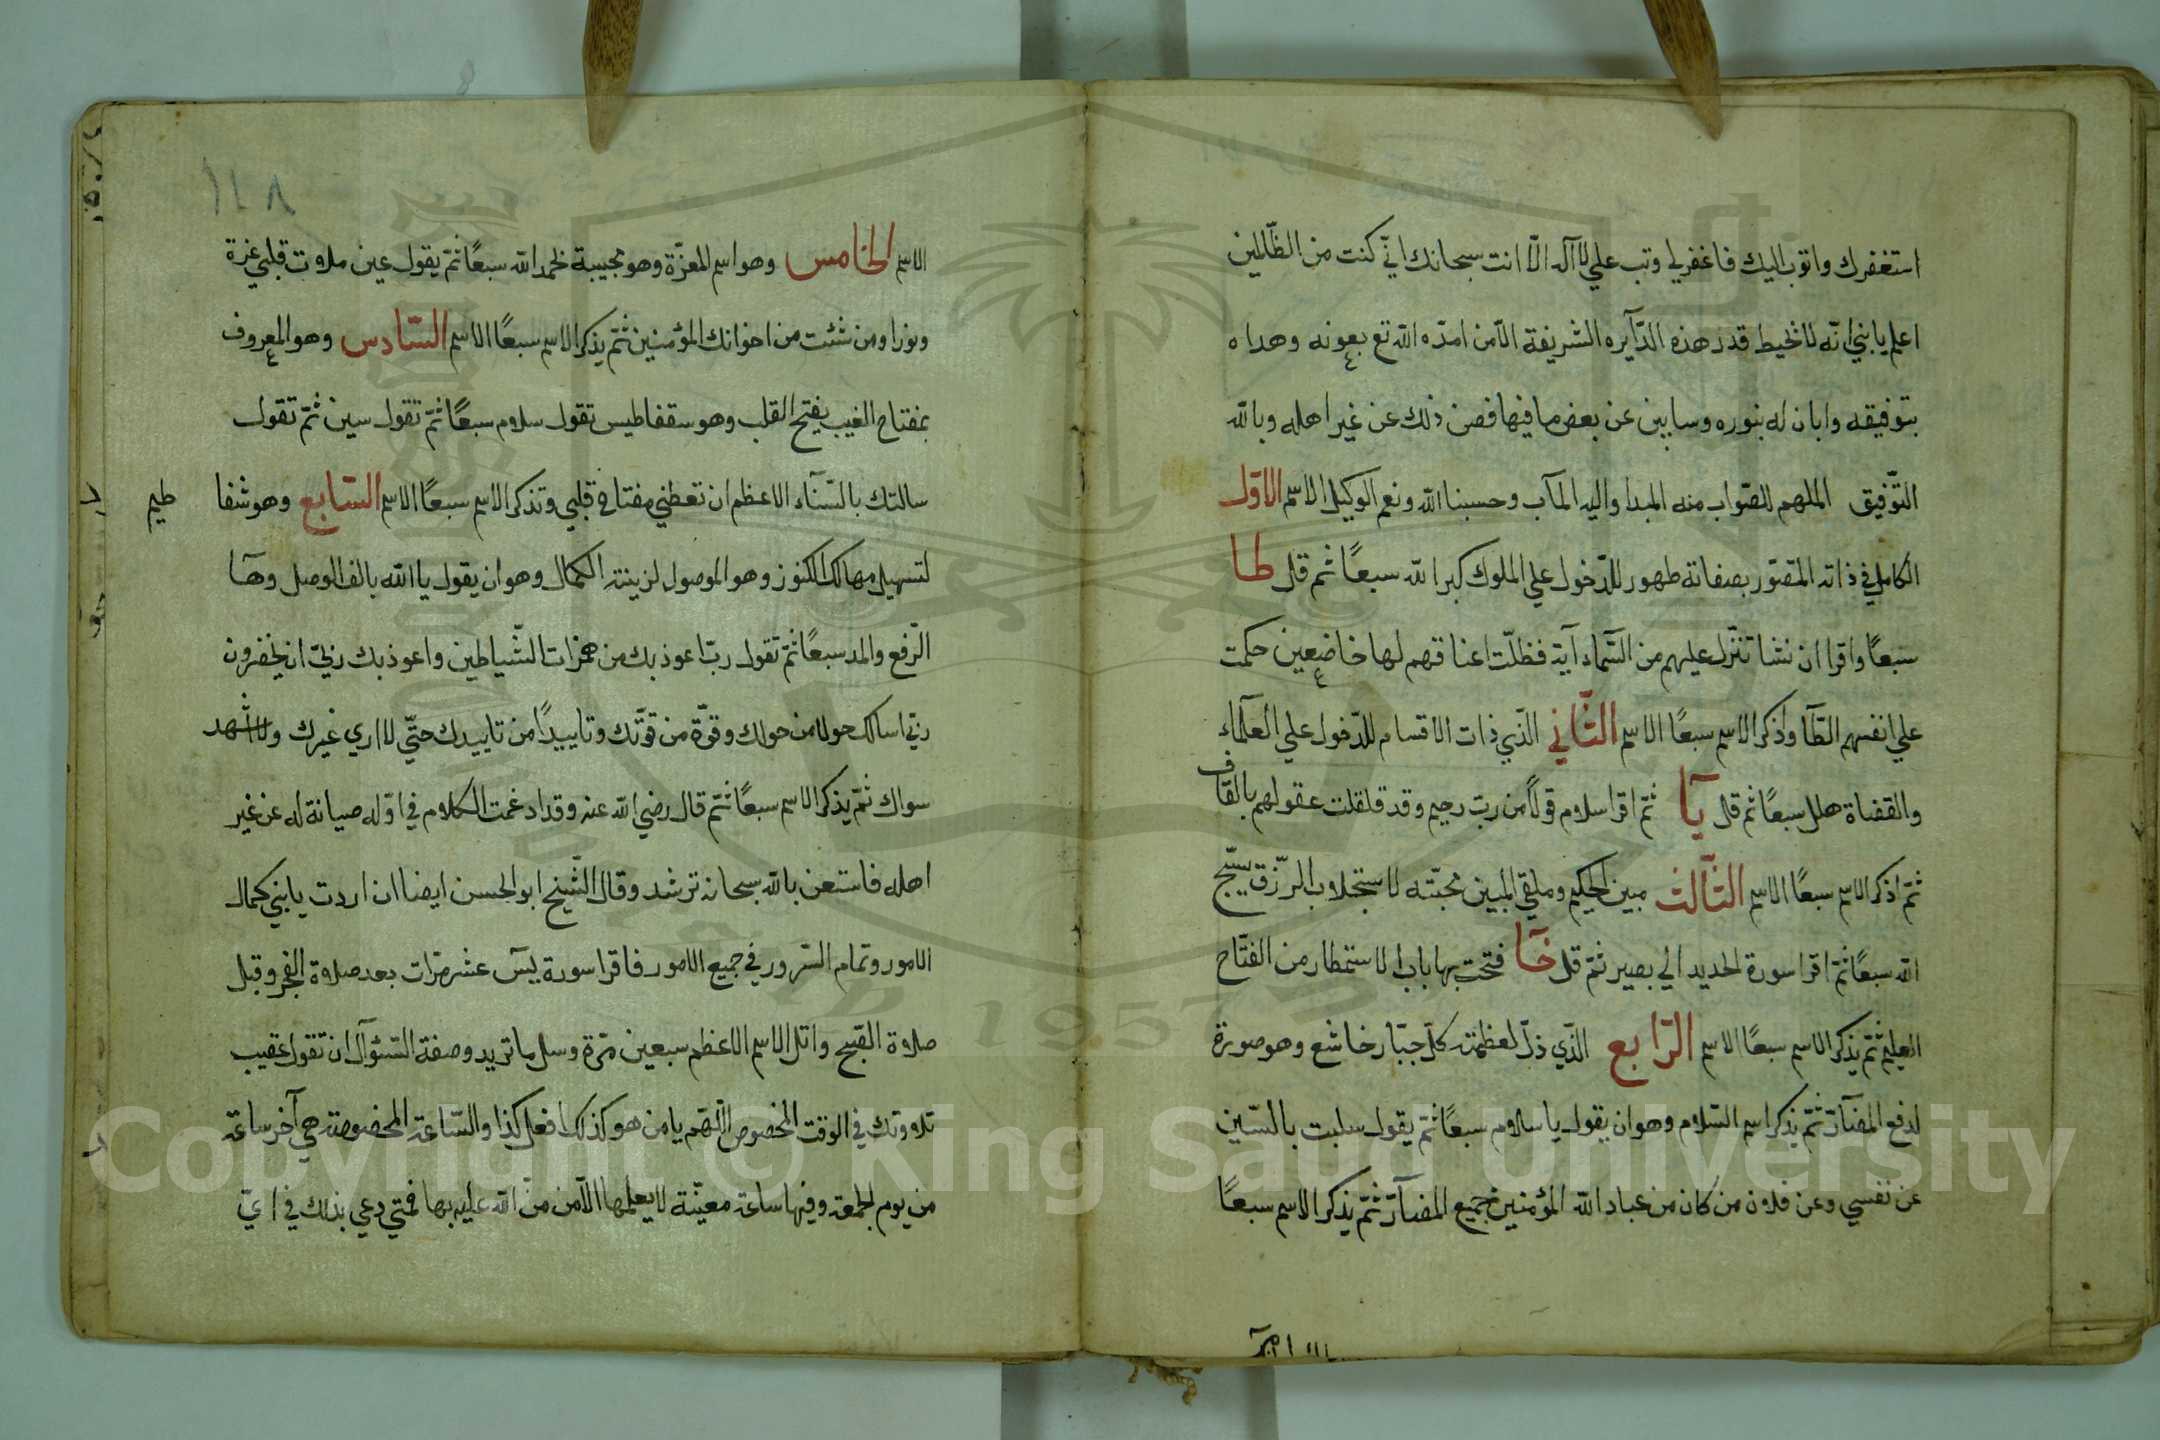 استغفرك واتوب اليك فاغفرلي وتب علي لا اله الّا انت سبحانك انّي كنت من الظّالمين
اعلم يا بني انّه لا تحيط قدر هذه الدّآيره الشريفة الّا من امدّه الله تع بعونه وهداه
بتوفيقه وابان له بنوره وسابين عن بعض ما فيها فصن ذلك عن غير اهله وبالله
التّوفيق الملهم للصّواب منه المبدا واليه المآب وحسبنا الله ونعم الوكيل الاسم الاوّل
الكامل في ذاته المقتور بصفاته طهور للدّخول علي الملوك كبر الله سبعًا ثم قل طا
سبعًا واقرا ان نشا ننزّل عليهم من السّماء آية فظلّت اعناقهم لها خاضعين حكمت
علي انفسهم الطّا واذكر الاسم سبعًا الاسم الثّاني الذّي ذات الاقسام للدّخول علي العلماء
والقضاة هلل سبعًا ثم قل يا ثمّ اقرا سلام قولًا من ربّ رحيم وقد قلقلت عقولهم بالقاف
ثمّ اذكر الاسم سبعًا الاسم الثّالث مبين الحكيم وملقي المبين محبّته لاستجلاب الرّزق سبّح
الله سبعًا ثمّ اقرا سورة الحديد الي بصير ثمّ قل خا فتحت بها باب الاستمطار من الفتّاح
العليم ثمّ يذكر الاسم سبعًا الاسم الرّابع الذّي ذلّ لعظمته كلّ جبّار خاشع وهو صورة
لدفع المضآرّ ثمّ يذكر اسم السّلام وهو ان يقول يا سلام سبعًا ثمّ يقول سلبت بالسّين
عن نفسي وعن فلان من كان من عباد الله المؤمنين جميع المضآرّ ثمّ يذكر الاسم سبعًا
١١٨
الاسم الخامس وهو اسم المعزّة وهو مجيبة تحمد الله سبعًا ثمّ يقول عين ملات قلبي عزة
ونورا ومن شئت من اخوانك المؤمنين ثمّ يذكر الاسم سبعًا الاسم السّادس وهو المعروف
بمفتاح الغيب يفتح القلب وهو سقفاطيس تقول سلام سبعًا ثمّ تقول سين ثمّ تقول
سالتك بالسّنآء الاعظم ان تعطني مفتاح قلبي وتذكر الاسم سبعًا الاسم السّابع وهو شفا
طيم
لتسهيل مهالك الكنوز وهو الموصول لزينته الكمال وهو ان يقول يا الله بالف الوصل وهآ
الرّفع والمد سبعًا ثمّ تقول ربّ اعوذ بك من همزات الشّياطين واعوذ بك ربّ ان يحضرون
ربّ اسالك حولا من حولك وقوّة من قوّتك وتاييدًا من تاييدك حتّي لا اري غيرك ولا اشهد
سواك ثمّ يذكر الاسم سبعًا ثمّ قال رضي الله عنه وقد ادغمت الكلام في اوّله صيانة له عن غير
اهله فاستعن بالله سبحانه ترشد وقال الشّيخ ابو الحسن ايضا ان اردت يا بني كمال
الامور وتمام السّرور في جميع الامور فاقرا سورة يسٓ عشر مرّات بعد صلاة الفجر وقبل
صلاة الصّبح واتل الاسم الاعظم سبعين مرّة وسل ما تريد وصفة السّؤال ان تقول عقيب
تلاوتك في الوقت المخصوص اللّهمّ يا من هو كذلك افعل كذا والسّاعة المخصوصة هي آخر ساعة
من يوم الجمعة وفيها ساعة معيّنة لا يعلمها الّا من منّ الله عليه بها فمتي دعي بذلك في ايّ
Copyright © King Saud University
1957